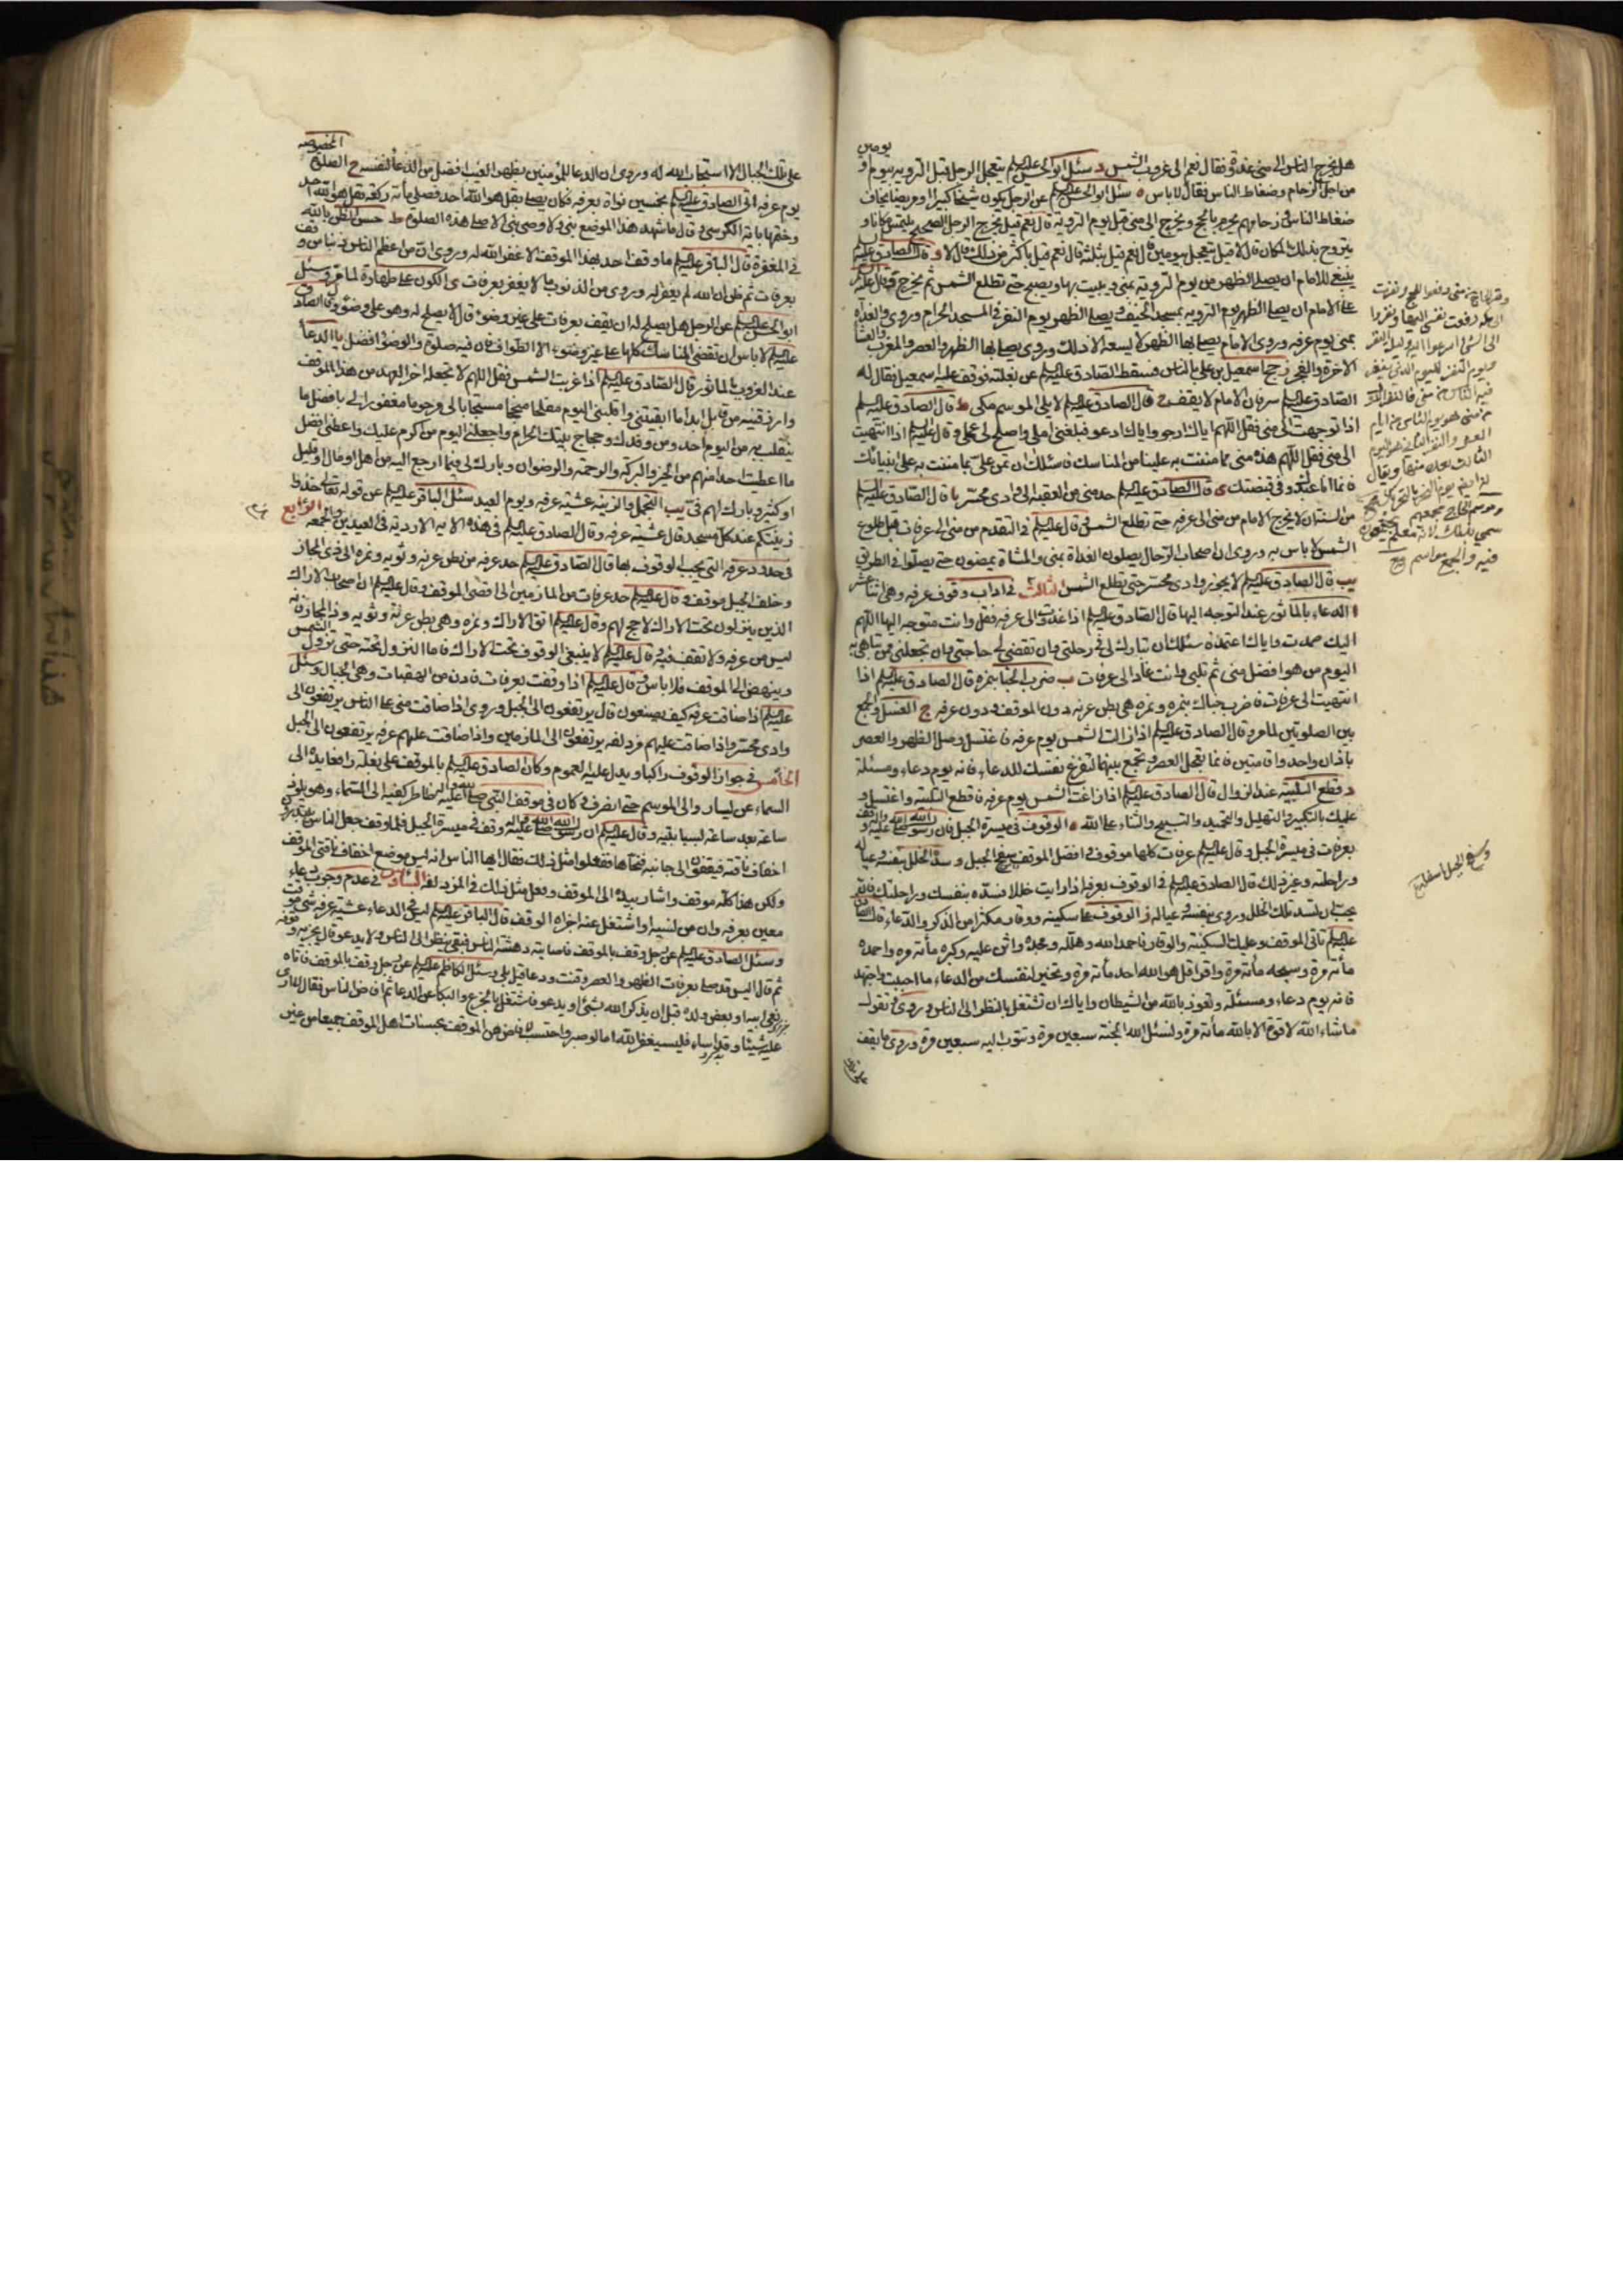 يومين
هل يخرج الناس الى منى غدوة فقال نعم الى غروب الشمس د سئل ابو الحسن عليه السلم يتعجل الرجل قبل التروية بيوم او
من اجل الزحام وضغاط الناس فقال لا باس ه سئل ابو الحسن عليه السلم عن الرجل يكون شيخا كبيرا او مريضا يخاف
ضغاط الناس وزحامهم يحرم بالحج ويخرج الى منى قبل يوم التروية قال نعم قيل يخرج الرجل الصحيح يلتمس مكانا و
يتروح بذلك المكان قال لا قيل يتعجل بيومين قال نعم قيل بثلثة قال نعم قيل باكثر من ذلك قال لا و قال الصادق عليه
ينبغي للامام ان يصلي الظهر من يوم التروية بمنى ويبيت بها ويصبح حتى تطلع الشمس ثم يخرج وقال عليه
على الامام ان يصلي الظهر يوم التروية بمسجد الخيف ويصلي الظهر يوم النفر في المسجد الحرام وروى والغداة
بمنى يوم عرفه وروى الامام يصلي بها الظهر لا يسعه الا ذلك وروى يصلي بها الظهر والعصر والمغرب والعشا
الآخرة والفجر ز حج اسمعيل بن علي بالناس فسقط الصادق عليه السلم عن بغلته فوقف عليه اسمعيل فقال له
الصادق عليه السلم سر فان الامام لا يقف ح قال الصادق عليه السلم لا يلي الموسم مكي ط قال الصادق عليه السلم
اذا توجهت الى منى فقل اللهم اياك ارجو واياك ادعو فبلغني املي واصلح لي عملي وقال عليه السلم اذا انتهيت
الى منى فقل اللهم هذه منى مما مننت به علينا من المناسك فاسئلك ان تمن علي بما مننت به على انبيائك
فانما انا عبدك وفي قبضتك ي قال الصادق عليه السلم حد منى من العقبه الى وادي محسر يا قال الصادق عليه السلم
من السنة ان لا يخرج الامام من منى الى عرفه حتى تطلع الشمس وقال عليه السلم في التقدم من منى الى عرفات قبل طلوع
الشمس لا باس به وروى ان اصحاب الرحال يصلون الغداة بمنى والمشاة يمضون حتى يصلوا في الطريق
يب قال الصادق عليه السلم لا يجوز وادى محسر حتى تطلع الشمس الثالث في اداب وقوف عرفه وهي اثنا عشر
ا الدعاء بالماثور عند التوجه اليها قال الصادق عليه السلم اذا غدوت الى عرفه فقل وانت متوجه اليها اللهم
اليك صمدت واياك اعتمدت اسئلك ان تبارك لي في رحلتي وان تقضي لي حاجتي وان تجعلني ممن تباهي به
اليوم من هو افضل مني ثم تلبي وانت غاد الى عرفات ب ضرب الخبا بنمره قال الصادق عليه السلم اذا
انتهيت الى عرفات فاضرب خباك بنمره ونمره هي بطن عرنه دون الموقف ودون عرفه ج الغسل والجمع
بين الصلوتين لما مر وقال الصادق عليه السلم اذا زالت الشمس يوم عرفه فاغتسل وصل الظهر والعصر
باذان واحد واقامتين فانما تعجل العصر وتجمع بينهما لتفرغ نفسك للدعاء فانه يوم دعاء ومسئلة
د قطع التلبيه عند الزوال قال الصادق عليه السلم اذا زاغت الشمس يوم عرفه فاقطع التلبية واغتسل و
عليك بالتكبير والتهليل والتحميد والتسبيح والثناء على الله ه الوقوف في ميسرة الجبل فان رسول الله صلى الله عليه واله وقف
بعرفات في ميسرة الجبل وقال عليه السلم عرفات كلها موقف وافضل الموقف سفح الجبل و سد الخلل بنفسه وعياله
وراحلته وغير ذلك قال الصادق عليه السلم في الوقوف بعرفه اذا رايت خللا فسده بنفسك وراحلتك فان الله
يحب ان تسد تلك الخلل وروى بنفسه وعياله ز الوقوف على سكينه ووقار مكثرا من الذكر والدعاء قال الصادق
عليه السلم تاتي الموقف وعليك السكينة والوقار فاحمد الله وهلله ومجده واثن عليه وكبره مأة مره واحمده
مأة مرة وسبحه مأة مرة واقرا قل هو الله احد مأة مرة وتخير لنفسك من الدعاء ما احببت واجتهد
فانه يوم دعاء ومسئلة وتعوذ بالله من الشيطان واياك ان تشتغل بالنظر الى الناس وروى وتقول
ما شاء الله لا قوة الا بالله مأة مرة وتسئل الله الجنة سبعين مرة وتتوب اليه سبعين مرة وروى ما يقف
وسفح الجبل اسفله
على تلك الجبال الا استجاب الله له وروى ان الدعا للمؤمنين بظهر الغيب افضل من الدعا لنفسه ح الصلوة
يوم عرفه اتى الصادق عليه السلم بخمسين نواة بعرفه فكان يصلي بقل هو الله احد فصلى مأة ركعة بقل هو الله احد
وختمها باية الكرسي وقال ما شهد هذا الموضع نبي ولا وصي نبي الا صلى هذه الصلوة ط حسن الظن بالله
في المغفرة قال الباقر عليه السلم ما وقف احد بهذا الموقف الا غفر الله له وروى ان من اعظم الناس ذنبا من وقف
بعرفات ثم ظن ان الله لم يغفر له وروى من الذنوب ما لا يغفر بعرفات ي الكون على طهارة لما مر وسئل
ابو الحسن عليه السلم عن الرجل هل يصلح له ان يقف بعرفات على غير وضوء قال لا يصلح له وهو على وضوء وقال الصادق
عليه السلم لا باس ان تقضي المناسك كلها على غير وضوء الا الطواف فان فيه صلوة والوضوء افضل يا الدعا
عند الغروب بالماثور قال الصادق عليه السلم اذا غربت الشمس فقل اللهم لا تجعله اخر العهد من هذا الموقف
وارزقنيه من قابل ابدا ما ابقيتني واقلبني اليوم مفلحا منجحا مستجابا لي مرحوما مغفورا لي بافضل ما
ينقلب به من اليوم احد من وفدك وحجاج بيتك الحرام واجعلني اليوم من اكرم عليك واعطني افضل
ما اعطيت احدا منهم من الخير والبركة والرحمة والرضوان وبارك لي فيما ارجع اليه من اهل او مال او قليل
او كثير وبارك لهم في يب التجمل والزينه عشية عرفه ويوم العيد سئل الباقر عليه السلم عن قوله تعالى خذوا
زينتكم عند كل مسجد قال عشية عرفه وقال الصادق عليه السلم في هذه الايه الارديه في العيدين والجمعه الرابع
في حدود عرفه التي يجب الوقوف بها قال الصادق عليه السلم حد عرفه من بطن عرنه وثويه ونمره الى ذي المجاز
وخلف الجبل موقف وقال عليه السلم حد عرفات من المازمين الى اقصى الموقف وقال عليه السلم ان اصحاب الاراك
الذين ينزلون تحت الاراك لا حج لهم وقال عليه السلم اتق الاراك ونمره وهي بطن عرنة وثويه وذا المجاز فانه
ليس من عرفه ولا تقف فيه وقال عليه السلم لا ينبغي الوقوف تحت الاراك فاما النزول تحته حتى تزول الشمس
وينهض الى الموقف فلا باس وقال عليه السلم اذا وقفت بعرفات فادن من الهضبات وهي الجبال وسئل
عليه السلم اذا ضاقت عرفه كيف يصنعون قال يرتفعون الى الجبل وروى اذا ضاقت منى على الناس يرتفعون الى
وادى محسر واذا ضاقت عليهم مزدلفه يرتفعون الى المازمين واذا ضاقت عليهم عرفه يرتفعون الى الجبل
الخامس في جواز الوقوف راكبا ويدل عليه العموم وكان الصادق عليه السلم بالموقف على بغلة رافعا يده الى
السماء عن يسار والى الموسم حتى انصرف وكان في موقف النبي صلى الله عليه واله وظاهر كفيه الى السماء وهو يلوذ
ساعة بعد ساعة بسبابتيه وقال عليه السلم ان رسول الله صلى الله عليه واله وقف في ميسرة الجبل فلما وقف جعل الناس يبتدرون
اخفاف ناقته فيقفون الى جانبه فنحاها ففعلوا مثل ذلك فقال ايها الناس انه ليس موضع اخفاف ناقتي الموقف
ولكن هذا كله موقف واشار بيده الى الموقف وفعل مثل ذلك في المزدلفه السادس في عدم وجوب دعاء
معين بعرفه وان من نسيه او اشتغل عنه اجزاه الوقف قال الباقر عليه السلم ليس في الدعاء عشية عرفه شئ موقت
وسئل الصادق عليه السلم عن رجل وقف بالموقف فاصابته دهشة الناس فبقي ينظر الى الناس ولا يدعو قال يجزيه وقوفه
ثم قال اليس قد صلى بعرفات الظهر والعصر وقنت ودعا قيل بلى وسئل الكاظم عليه السلم عن رجل وقف بالموقف فاتاه
نعي ابيه او بعض ولده قبل ان يذكر الله بشئ او يدعو فاشتغل بالجزع والبكا عن الدعا ثم افاض الناس فقال لا ارى
عليه شيئا وقد اساء فليستغفر الله اما لو صبر واحتسب لافاض من الموقف بحسنات اهل الموقف جميعا من غير